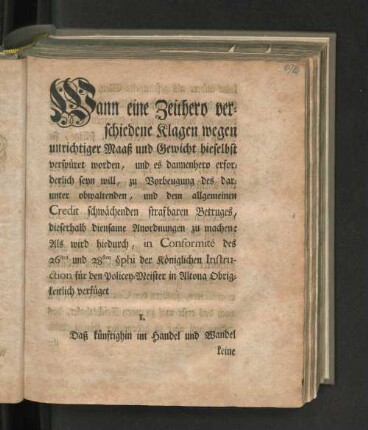 Wann eine Zeithero ver-
schiedene Klagen wegen
unrichtiger Maaß und Gewicht hieselbst
verspüret worden, und es dannenhero erfor-
derlich seyn will, zu Vorbeugung des dar-
unter obwaltenden, und dem allgemeinen
Credit schwächenden strafbaren Betruges,
dieserhalb diensame Anordnungen zu machen:
Als wird hiedurch, in Conformité des
26sten und 28sten §phi der Königlichen Instru-
ction für den Policey-Meister in Altona Obrig-
keitlich verfüget
I.
Daß künftighin im Handel und Wandel
keine